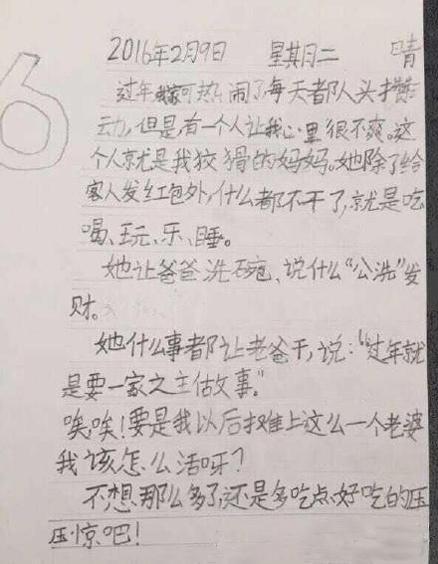 2016年2月9日 星期二 晴
6
过年我家可热闹了每天都人头攒
动,但是,有一个人让我心里很不爽。这
个人就是我狡猾的妈妈。她除了给
客人发红包外,什么都不干了,就是吃
喝、玩、乐、睡。
她让爸爸洗碗、说什么“公洗”发
财。
她什么事都让老爸干,说:“过年就
是要一家之主做事。”
唉唉!要是我以后摊上这么一个老婆
我该怎么活呀?
不想那么多了,还是多吃点好吃的压
压惊吧!